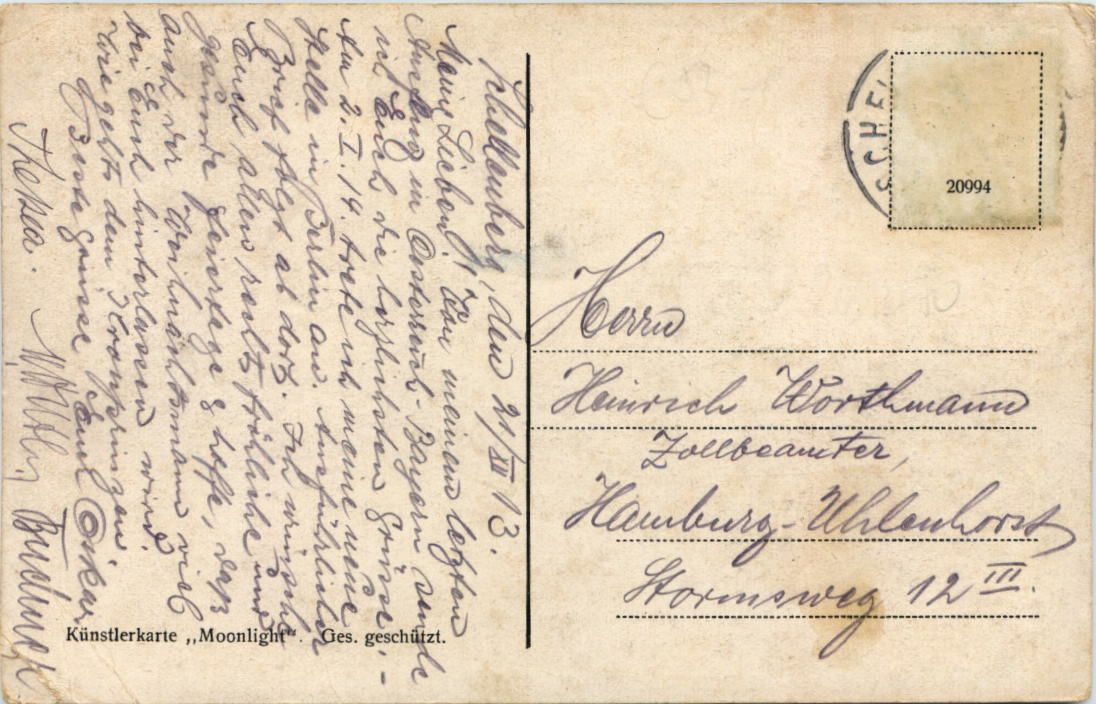 Schellenberg, den 21/XII 13.
Meine Lieben! Von meinem letzten
Ausflug in Österreich-Bayern sende
ich Euch die herzlichsten Grüsse.-
Am 2. I. 14. trete ich meine neue
Stelle in Berlin an. Ausführlicher
Brief folgt ab dort. Ich wünsche
Euch allen recht fröhliche und
gesunde Feiertage & hoffe, daß
auch der Weihnachtsmann viel
bei Euch hinterlassen wird.
Wie geht's dem Kronprinzen.
Beste Grüsse Eure Oskar
Thesa.
Buchner
Künstlerkarte „Moonlight". Ges. geschützt.
SCHEL
20994
Herrn
Heinrich Worthmann
Zollbeamter,
Hamburg-Uhlenhorst
Stormsweg 12 III.